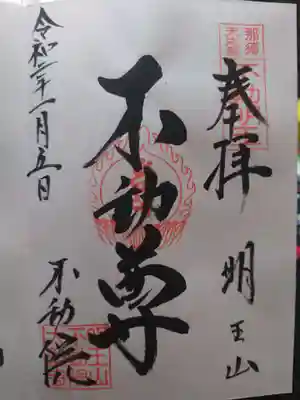 奉拝
明王山
不動尊
令和二年一月五日
不動院